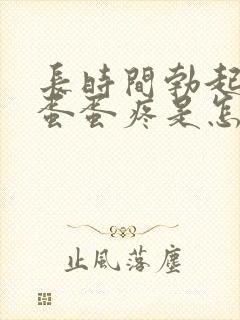 長時間勃起
蛋蛋疼是怎
止風落塵